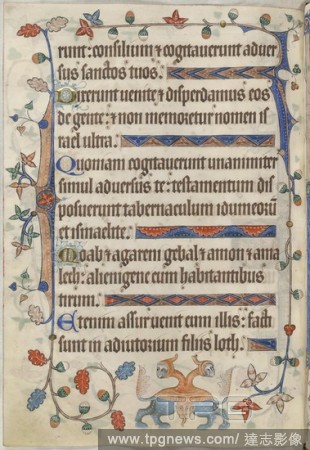 runt: consilium & cogitauerunt aduer
sus sanctos tuos.
Dixerunt uenite & disperdamus eos
de gente: & non memoretur nomen is
rael ultra.
Quoniam cogitauerunt unanimiter
simul aduersus te: testamentum dis
posuerunt tabernaculum idumeorū
et ismaelite.
Moab & agareni gebal & amon & ama
lech: alienigene cum habitantibus
tyrum.
Etenim assur uenit cum illis: facti
sunt in adiutorium filiis loth.
www.tpgnews.com/ 達志影像